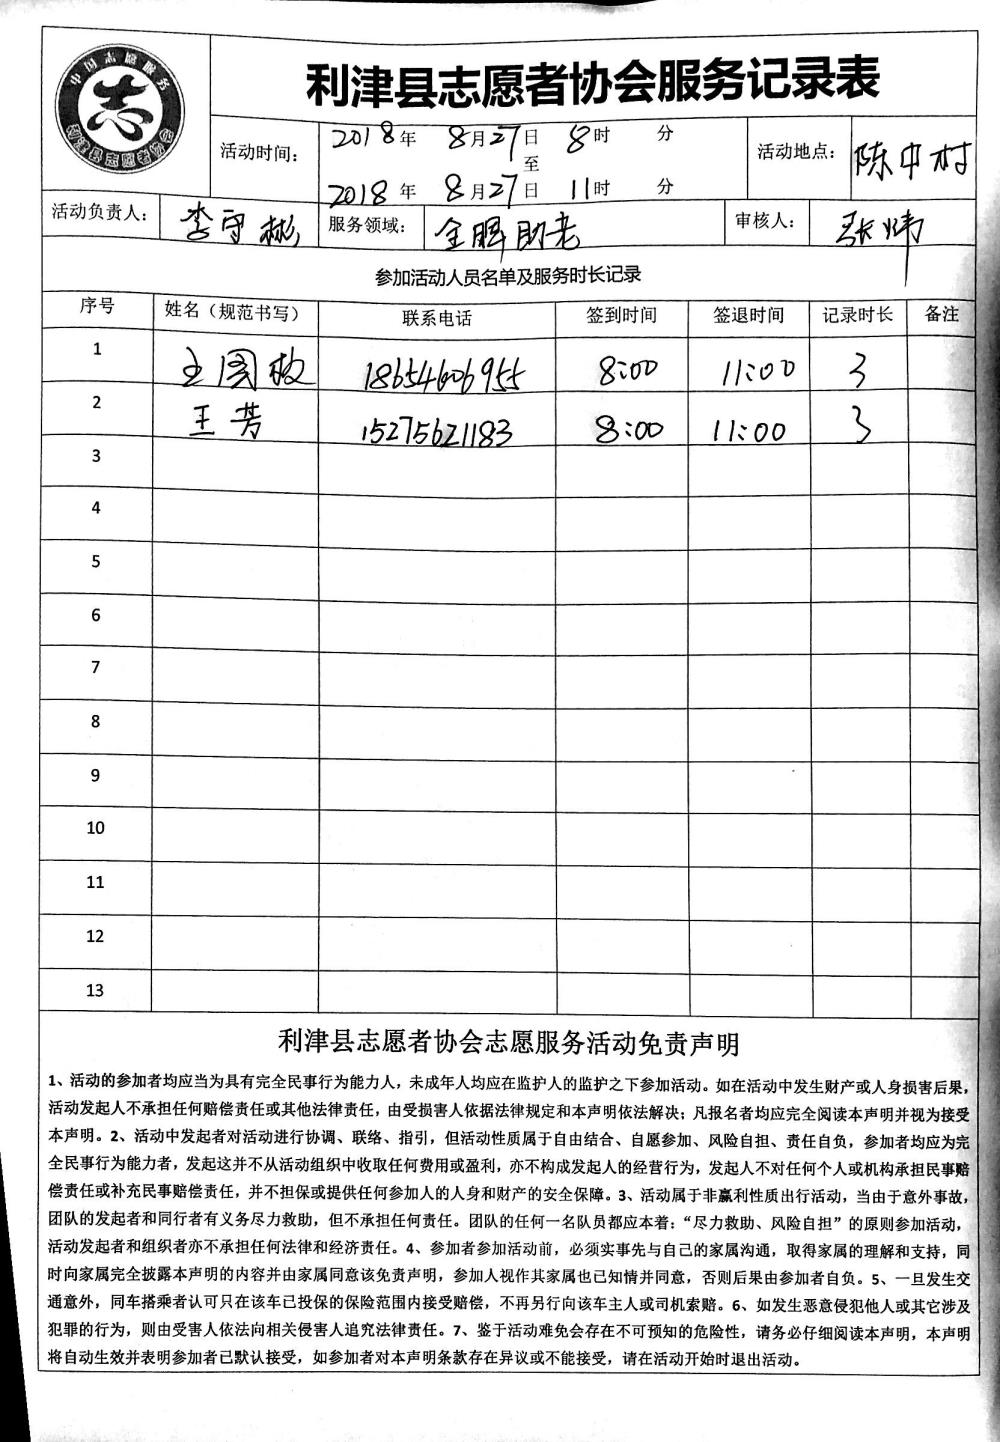 中国志愿服务
志
利津县志愿者协会
利津县志愿者协会服务记录表
活动时间：
2018年 8月27日 8时 分
至
2018年 8月27日 11时 分
活动地点： 陈中村
活动负责人： 李守彬 服务领域： 全晖助老 审核人： 张炜
参加活动人员名单及服务时长记录
序号 姓名（规范书写） 联系电话 签到时间 签退时间 记录时长 备注
1 王国枚 18654606955 8:00 11:00 3
2 王芳 15275621183 8:00 11:00 3
3
4
5
6
7
8
9
10
11
12
13
利津县志愿者协会志愿服务活动免责声明
1、活动的参加者均应当为具有完全民事行为能力人，未成年人均应在监护人的监护之下参加活动。如在活动中发生财产或人身损害后果，
活动发起人不承担任何赔偿责任或其他法律责任，由受损害人依据法律规定和本声明依法解决；凡报名者均应完全阅读本声明并视为接受
本声明。2、活动中发起者对活动进行协调、联络、指引，但活动性质属于自由结合、自愿参加、风险自担、责任自负，参加者均应为完
全民事行为能力者，发起这并不从活动组织中收取任何费用或盈利，亦不构成发起人的经营行为，发起人不对任何个人或机构承担民事赔
偿责任或补充民事赔偿责任，并不担保或提供任何参加人的人身和财产的安全保障。3、活动属于非赢利性质出行活动，当由于意外事故，
团队的发起者和同行者有义务尽力救助，但不承担任何责任。团队的任何一名队员都应本着：“尽力救助、风险自担”的原则参加活动，
活动发起者和组织者亦不承担任何法律和经济责任。4、参加者参加活动前，必须实事先与自己的家属沟通，取得家属的理解和支持，同
时向家属完全披露本声明的内容并由家属同意该免责声明，参加人视作其家属也已知情并同意，否则后果由参加者自负。5、一旦发生交
通意外，同车搭乘者认可只在该车已投保的保险范围内接受赔偿，不再另行向该车主人或司机索赔。6、如发生恶意侵犯他人或其它涉及
犯罪的行为，则由受害人依法向相关侵害人追究法律责任。7、鉴于活动难免会存在不可预知的危险性，请务必仔细阅读本声明，本声明
将自动生效并表明参加者已默认接受，如参加者对本声明条款存在异议或不能接受，请在活动开始时退出活动。